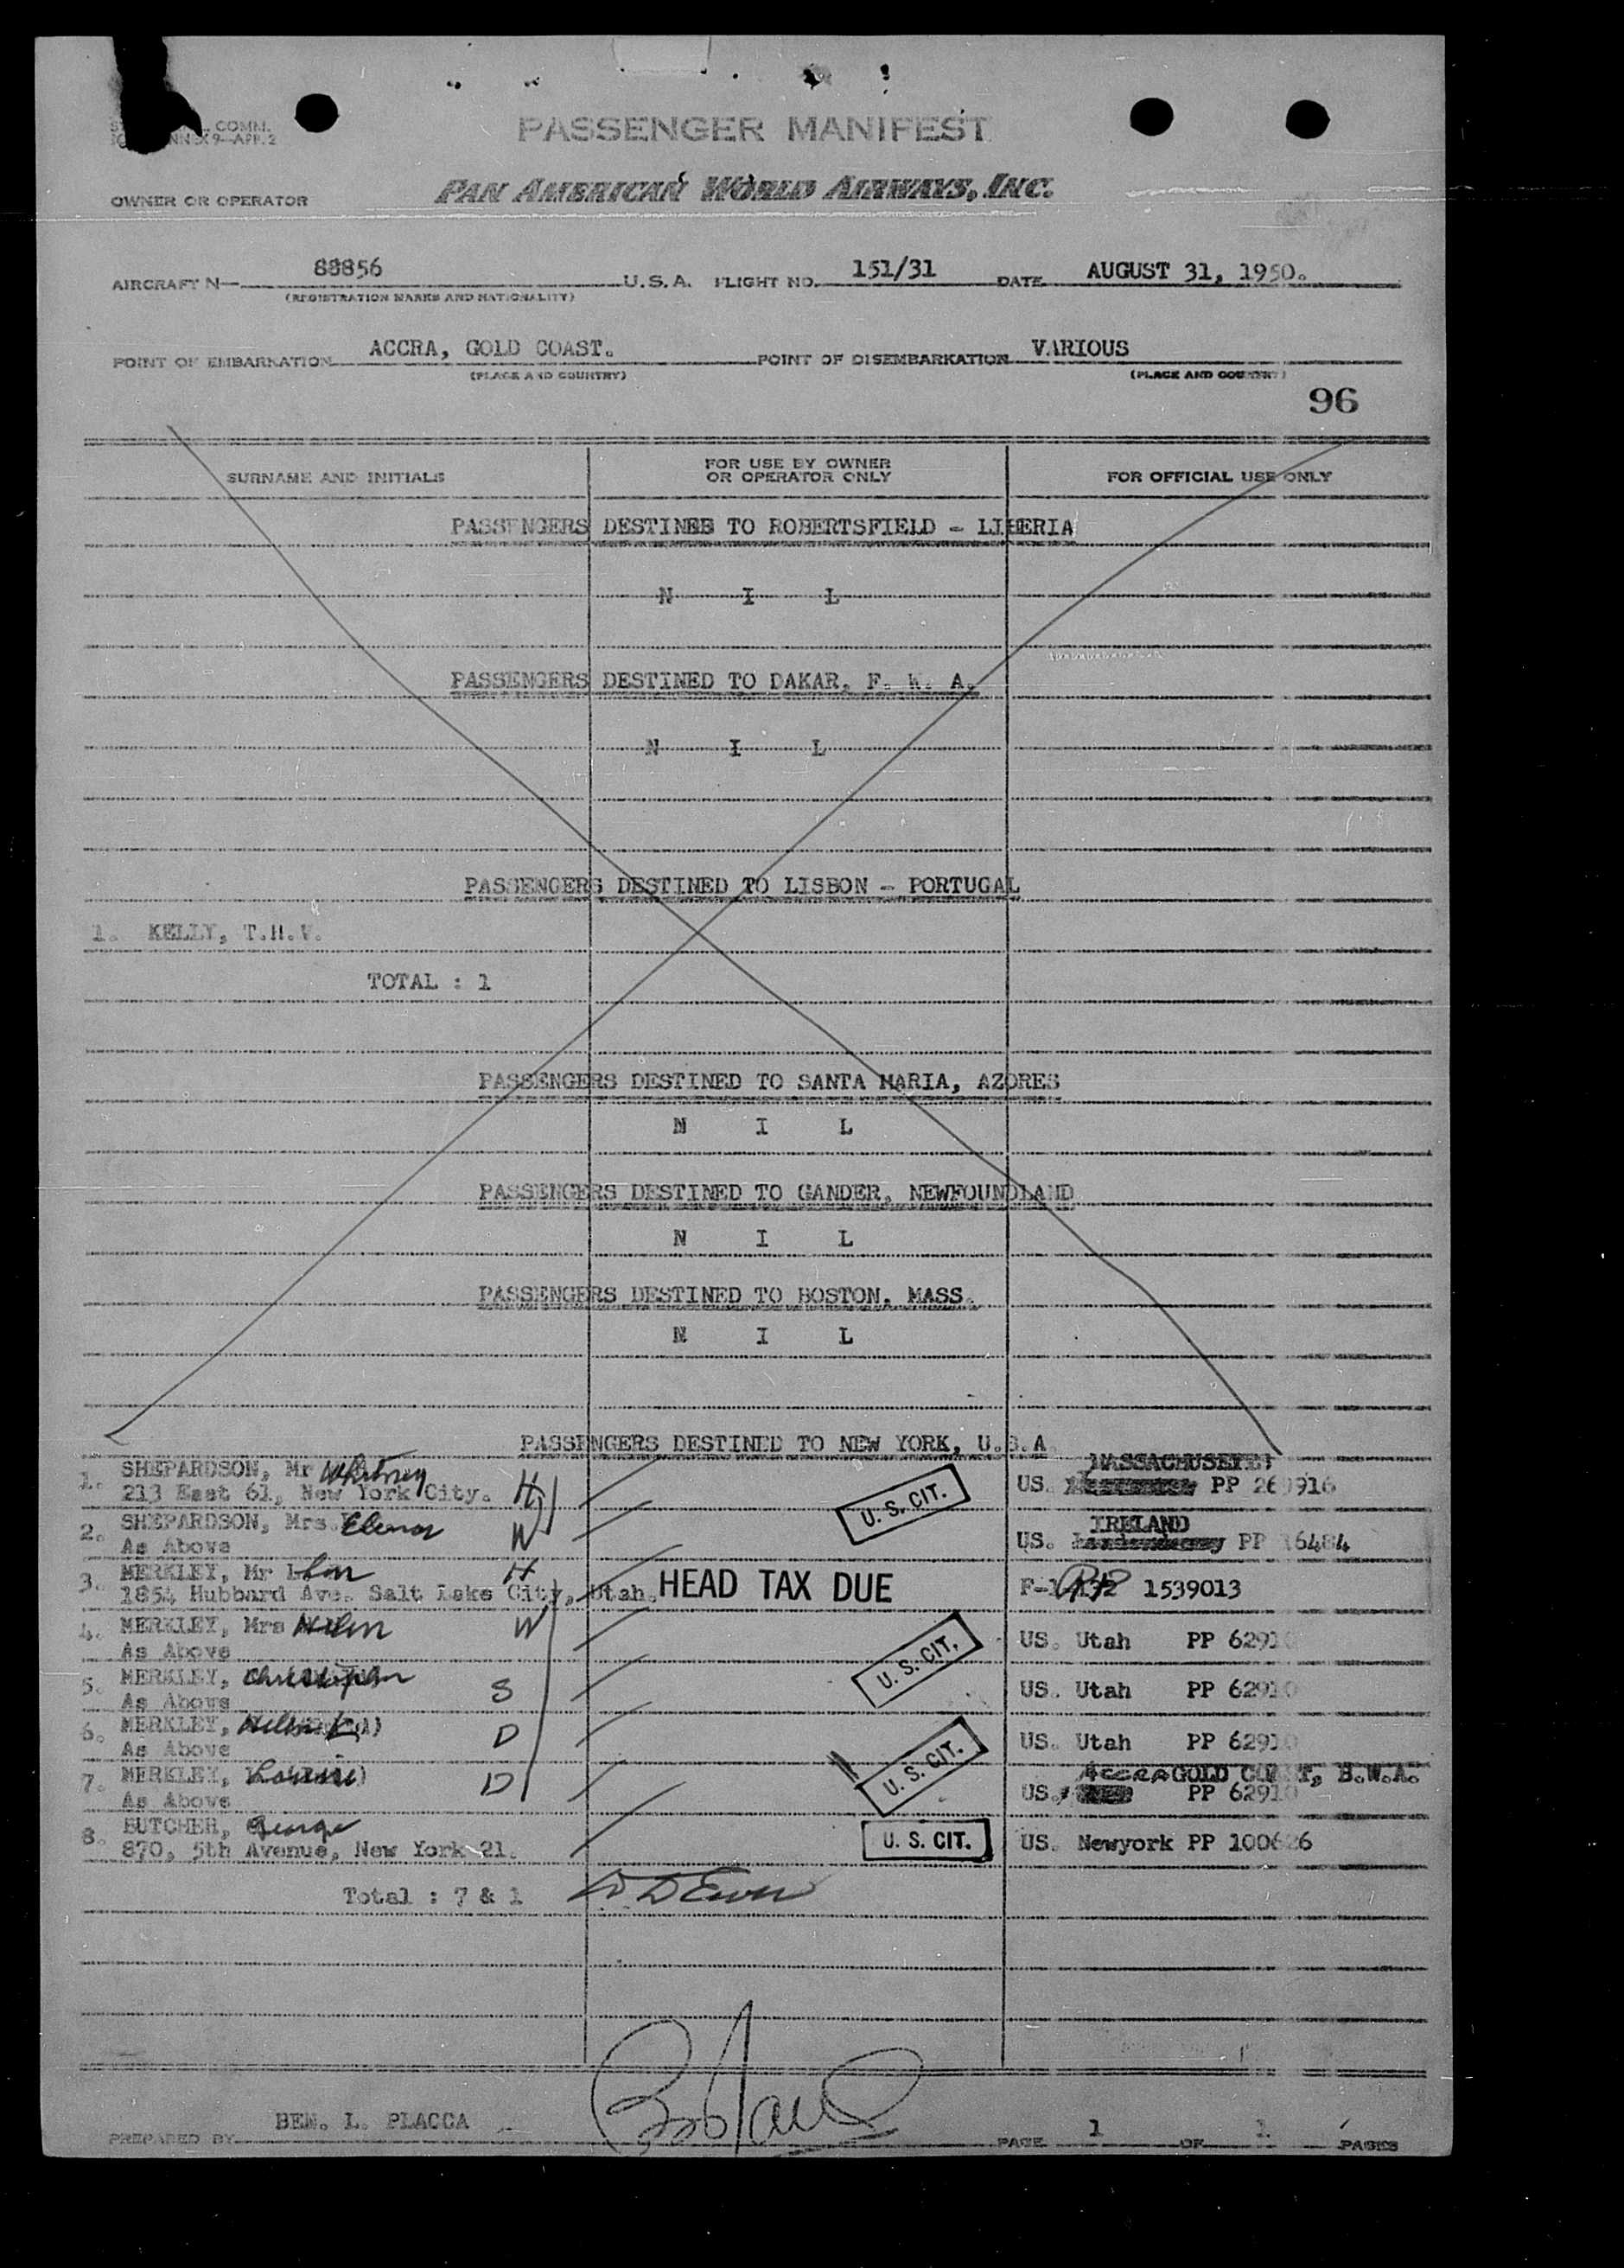 COMM.
9—APP. 2
PASSENGER MANIFEST
OWNER OR OPERATOR PAN AMERICAN WORLD AIRWAYS, INC.
AIRCRAFT N— 88856 U.S.A. FLIGHT NO. 151/31 DATE AUGUST 31, 1950.
(REGISTRATION MARKS AND NATIONALITY)
POINT OF EMBARKATION ACCRA, GOLD COAST. POINT OF DISEMBARKATION VARIOUS
(PLACE AND COUNTRY) (PLACE AND COUNTRY)
96
SURNAME AND INITIALS FOR USE BY OWNER OR OPERATOR ONLY FOR OFFICIAL USE ONLY
PASSENGERS DESTINED TO ROBERTSFIELD - LIBERIA
N I L
PASSENGERS DESTINED TO DAKAR, F. W. A.
N I L
PASSENGERS DESTINED TO LISBON - PORTUGAL
1. KELLY, T.H.V.
TOTAL : 1
PASSENGERS DESTINED TO SANTA MARIA, AZORES
N I L
PASSENGERS DESTINED TO GANDER, NEWFOUNDLAND
N I L
PASSENGERS DESTINED TO BOSTON, MASS.
N I L
PASSENGERS DESTINED TO NEW YORK, U.S.A.
MASSACHUSETTS
1. SHEPARDSON, Mr Whitney H U. S. CIT. US. PP
213 East 61, New York City.
IRELAND
2. SHEPARDSON, Mrs. Elenor W US. PP
As Above
3. MERKLEY, Mr Lon H HEAD TAX DUE 1539013
1854 Hubbard Ave. Salt Lake City, Utah.
4. MERKLEY, Mrs Helen W U. S. CIT. US. Utah PP 62910
As Above
5. MERKLEY, Christopher S US. Utah PP 62910
As Above
6. MERKLEY, Helen D U. S. CIT. US. Utah PP 62910
As Above
Accra GOLD COAST, B.W.A.
7. MERKLEY, D US. PP 62910
As Above
8. BUTCHER, George U. S. CIT. US. Newyork PP 100626
870, 5th Avenue, New York 21.
Total : 7 & 1
PREPARED BY BEN. L. PLACCA PAGE 1 OF 1 PAGES